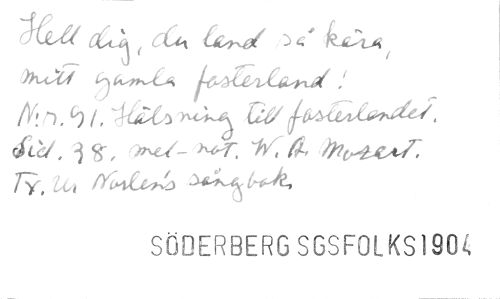 Hell dig, du land så kära,
mitt gamla fosterland!
N:r. 91. Hälsning till fosterlandet.
Sid. 98. mel-not. W. A. Mozart.
Tr. ur Norlén's sångbok.
SÖDERBERG SGSFOLKS1904